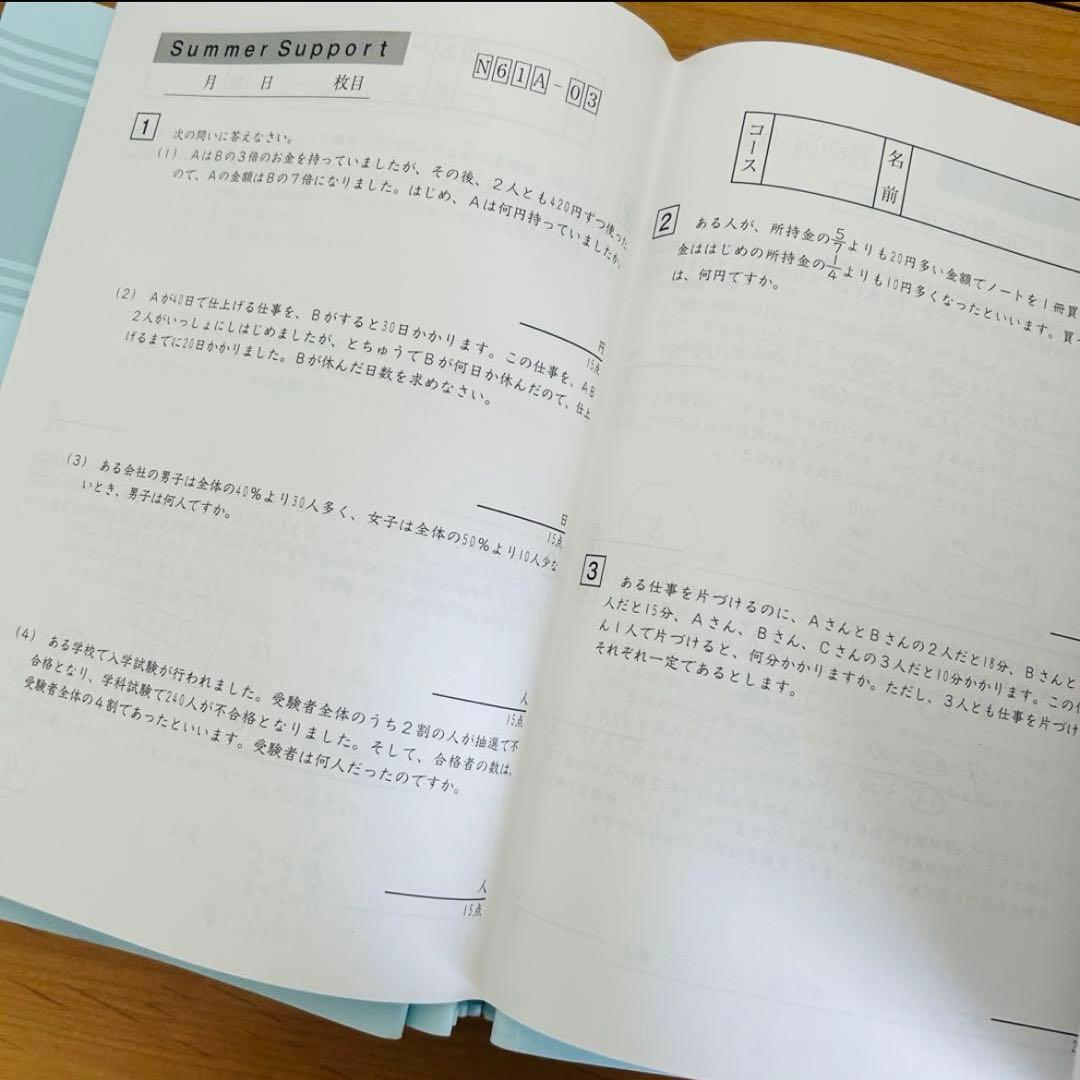 Summer Support
月 日 枚目
N61A-03
1 次の問いに答えなさい。
(1) AはBの3倍のお金を持っていましたが、その後、2人とも420円ずつ使った
ので、Aの金額はBの7倍になりました。はじめ、Aは何円持っていましたか。
円
15点
(2) Aが40日で仕上げる仕事を、Bがすると30日かかります。この仕事を、AB
2人がいっしょにしはじめましたが、とちゅうでBが何日か休んだので、仕上
げるまでに20日かかりました。Bが休んだ日数を求めなさい。
日
15点
(3) ある会社の男子は全体の40%より30人多く、女子は全体の50%より10人少な
いとき、男子は何人ですか。
人
15点
(4) ある学校で入学試験が行われました。受験者全体のうち2割の人が抽選で不
合格となり、学科試験で240人が不合格となりました。そして、合格者の数は、
受験者全体の4割であったといいます。受験者は何人だったのですか。
人
15点
コース
名前
2 ある人が、所持金の5/7よりも20円多い金額でノートを1冊買
金ははじめの所持金の1/4よりも10円多くなったといいます。買
は、何円ですか。
3 ある仕事を片づけるのに、AさんとBさんの2人だと18分、Bさんと
人だと15分、Aさん、Bさん、Cさんの3人だと10分かかります。この
ん1人で片づけると、何分かかりますか。ただし、3人とも仕事を片づけ
それぞれ一定であるとします。
2